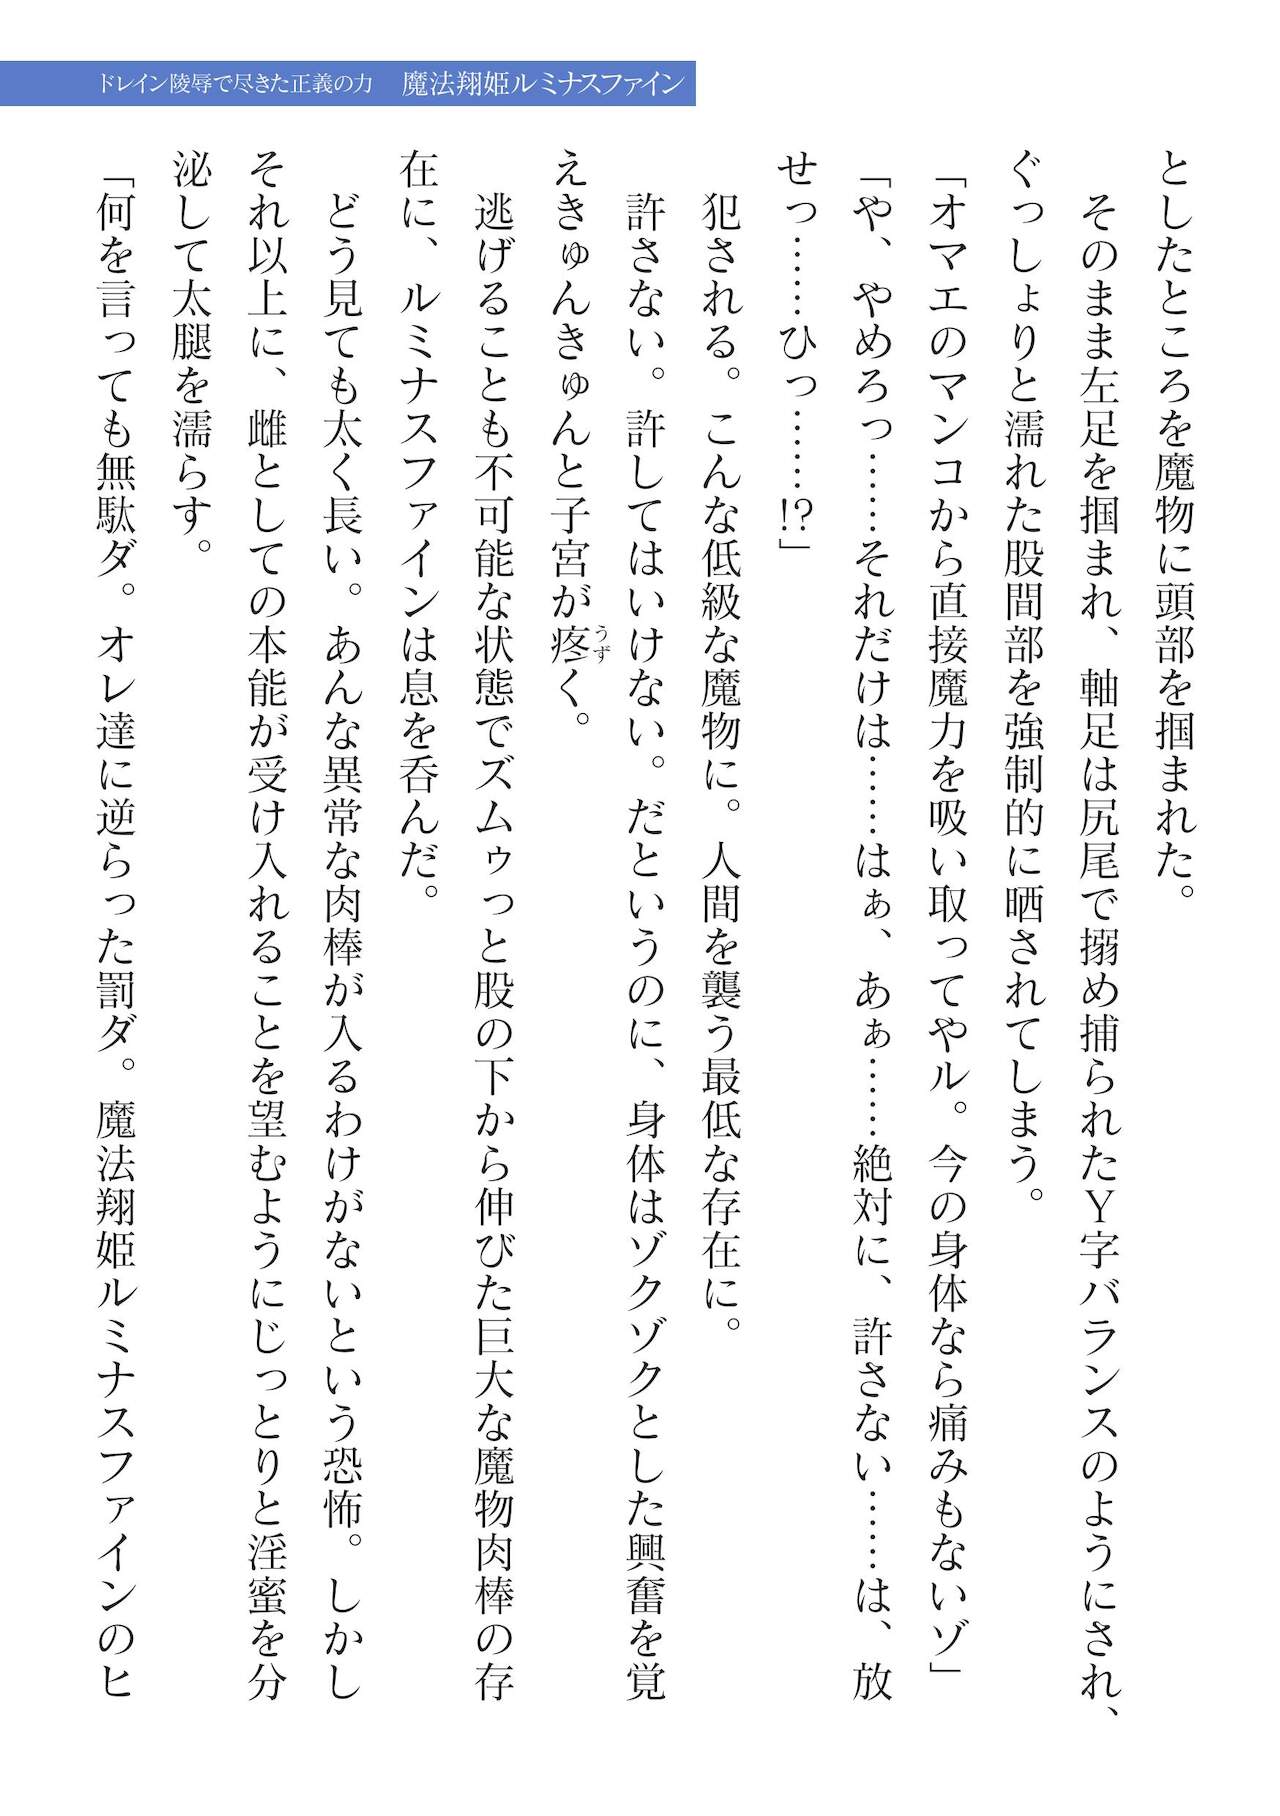 ドレイン陵辱で尽きた正義の力　魔法翔姫ルミナスファイン
としたところを魔物に頭部を掴まれた。
　そのまま左足を掴まれ、軸足は尻尾で搦め捕られたＹ字バランスのようにされ、
ぐっしょりと濡れた股間部を強制的に晒されてしまう。
「オマエのマンコから直接魔力を吸い取ってやル。今の身体なら痛みもないゾ」
「や、やめろっ……それだけは……はぁ、あぁ……絶対に、許さない……は、放
せっ……ひっ……!?」
　犯される。こんな低級な魔物に。人間を襲う最低な存在に。
　許さない。許してはいけない。だというのに、身体はゾクゾクとした興奮を覚
えきゅんきゅんと子宮が疼(うず)く。
　逃げることも不可能な状態でズムゥっと股の下から伸びた巨大な魔物肉棒の存
在に、ルミナスファインは息を呑んだ。
　どう見ても太く長い。あんな異常な肉棒が入るわけがないという恐怖。しかし
それ以上に、雌としての本能が受け入れることを望むようにじっとりと淫蜜を分
泌して太腿を濡らす。
「何を言っても無駄ダ。オレ達に逆らった罰ダ。魔法翔姫ルミナスファインのヒ